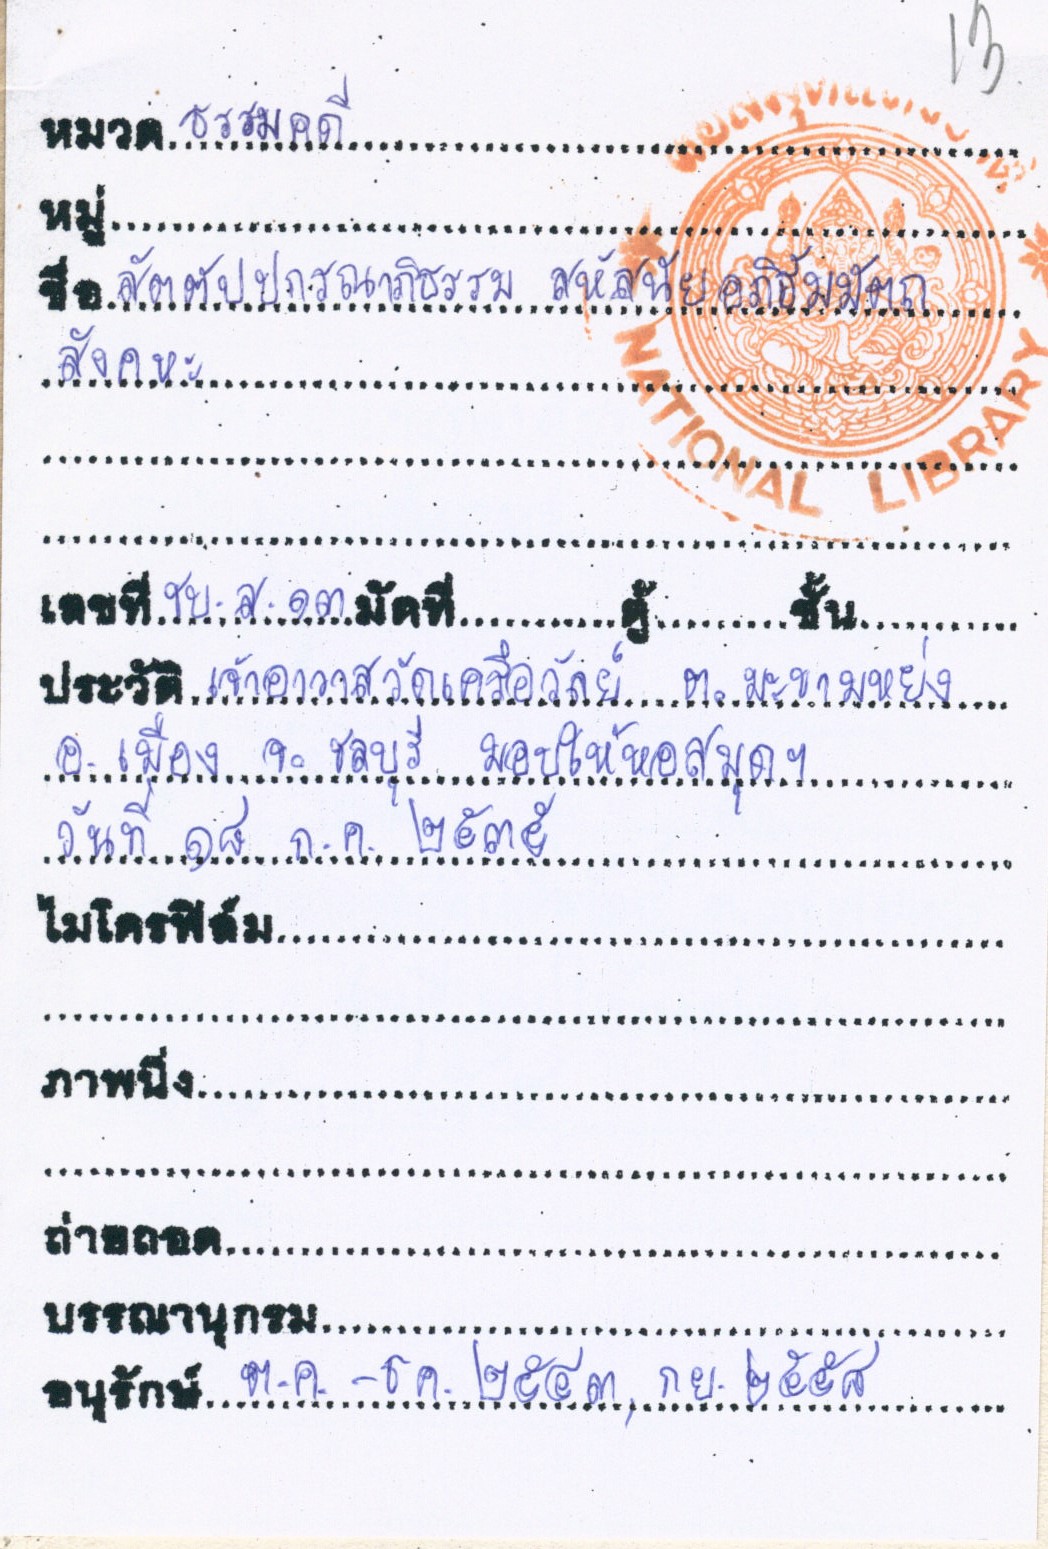 13
หอสมุดแห่งชาติ
NATIONAL LIBRARY
หมวด ธรรมคดี
หมู่
ชื่อ สัตตัปปกรณาภิธรรม สหัสนัยอภิธัมมัตถ
สังคหะ
เลขที่ ชบ.ส.๑๓ มัดที่ ตู้ ชั้น
ประวัติ เจ้าอาวาสวัดเครือวัลย์ ต.มะขามหย่ง
อ.เมือง จ.ชลบุรี มอบให้หอสมุดฯ
วันที่ ๑๘ ก.ค. ๒๕๓๕
ไมโครฟิล์ม
ภาพนิ่ง
ถ่ายถอด
บรรณานุกรม
อนุรักษ์ ต.ค.-ธค. ๒๕๔๓, กย. ๒๕๕๘